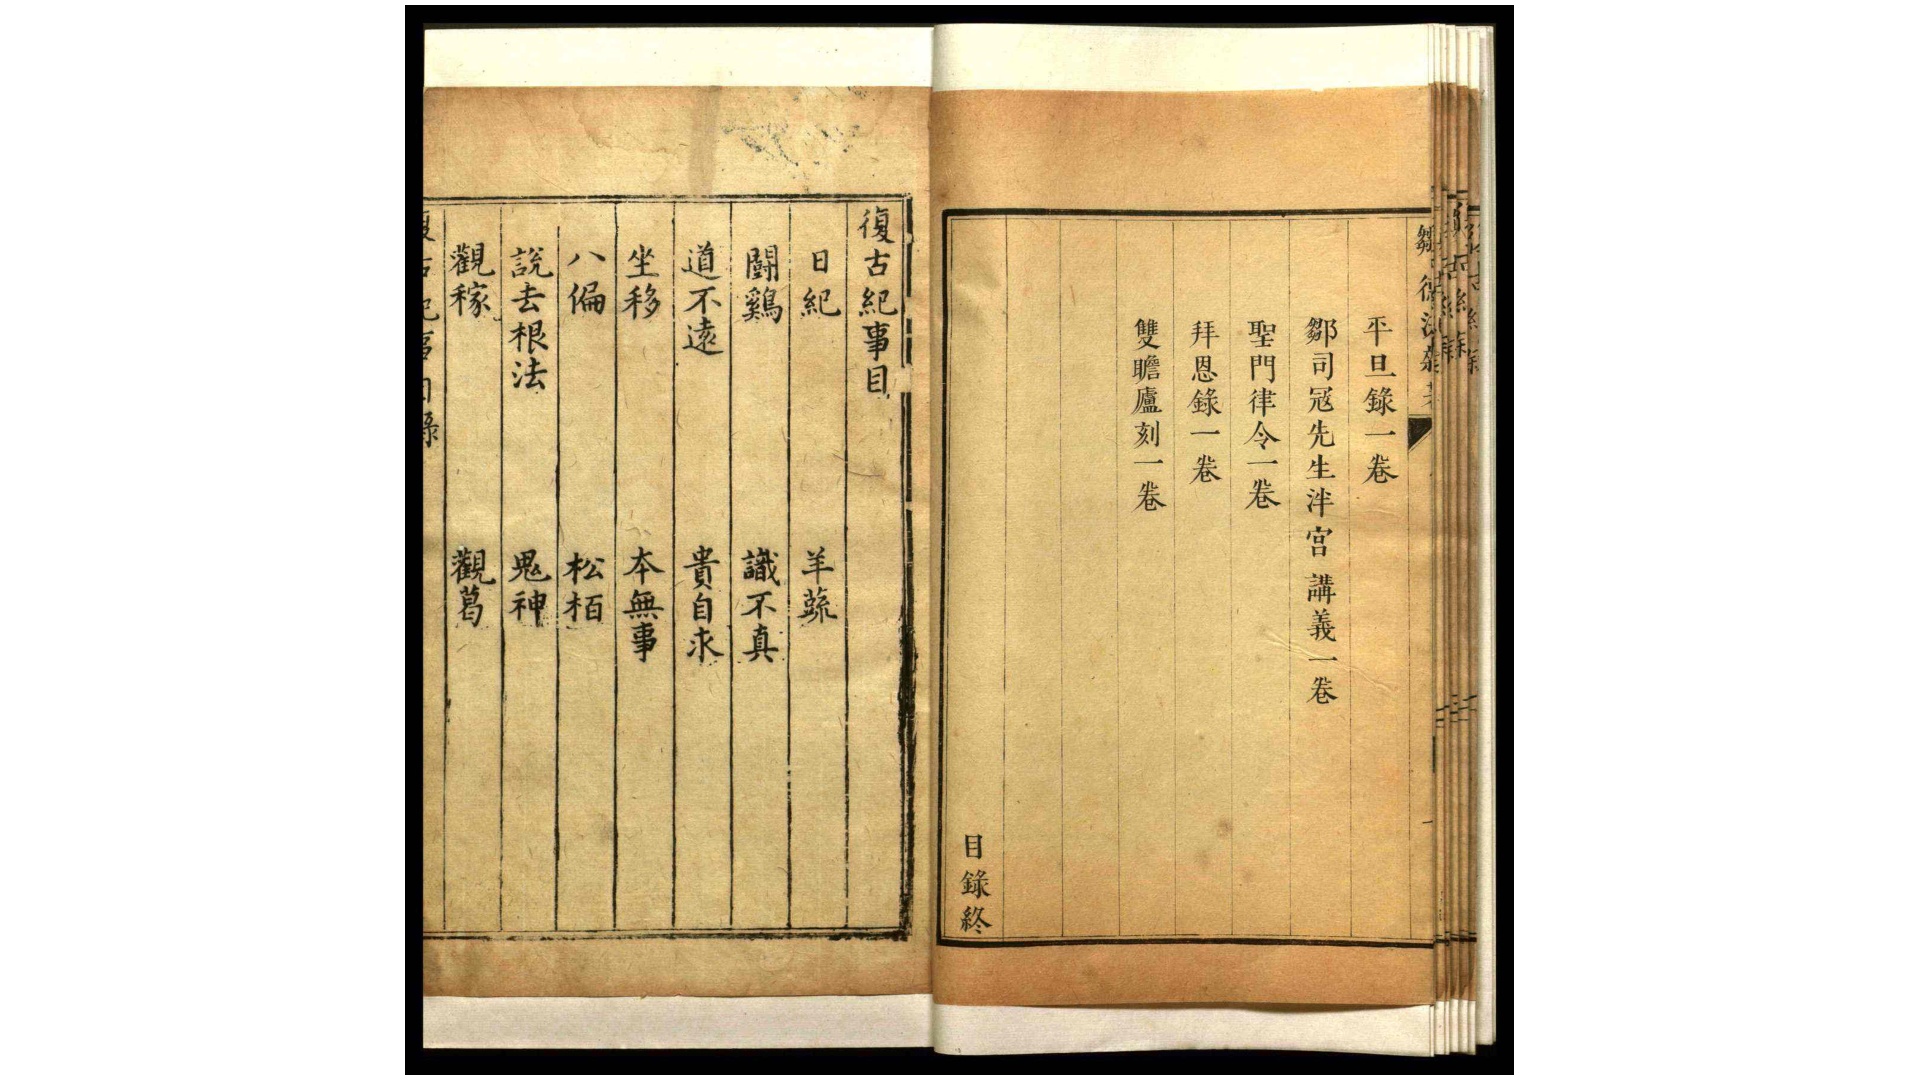 平旦錄一卷
鄒司寇先生泮宮講義一卷
聖門律令一卷
拜恩錄一卷
雙瞻廬刻一卷
目錄終
復古紀事目
日紀 羊蔬
鬪鷄 識不真
道不遠 貴自求
坐移 本無事
八偏 松栢
説去根法 鬼神
觀稼 觀葛